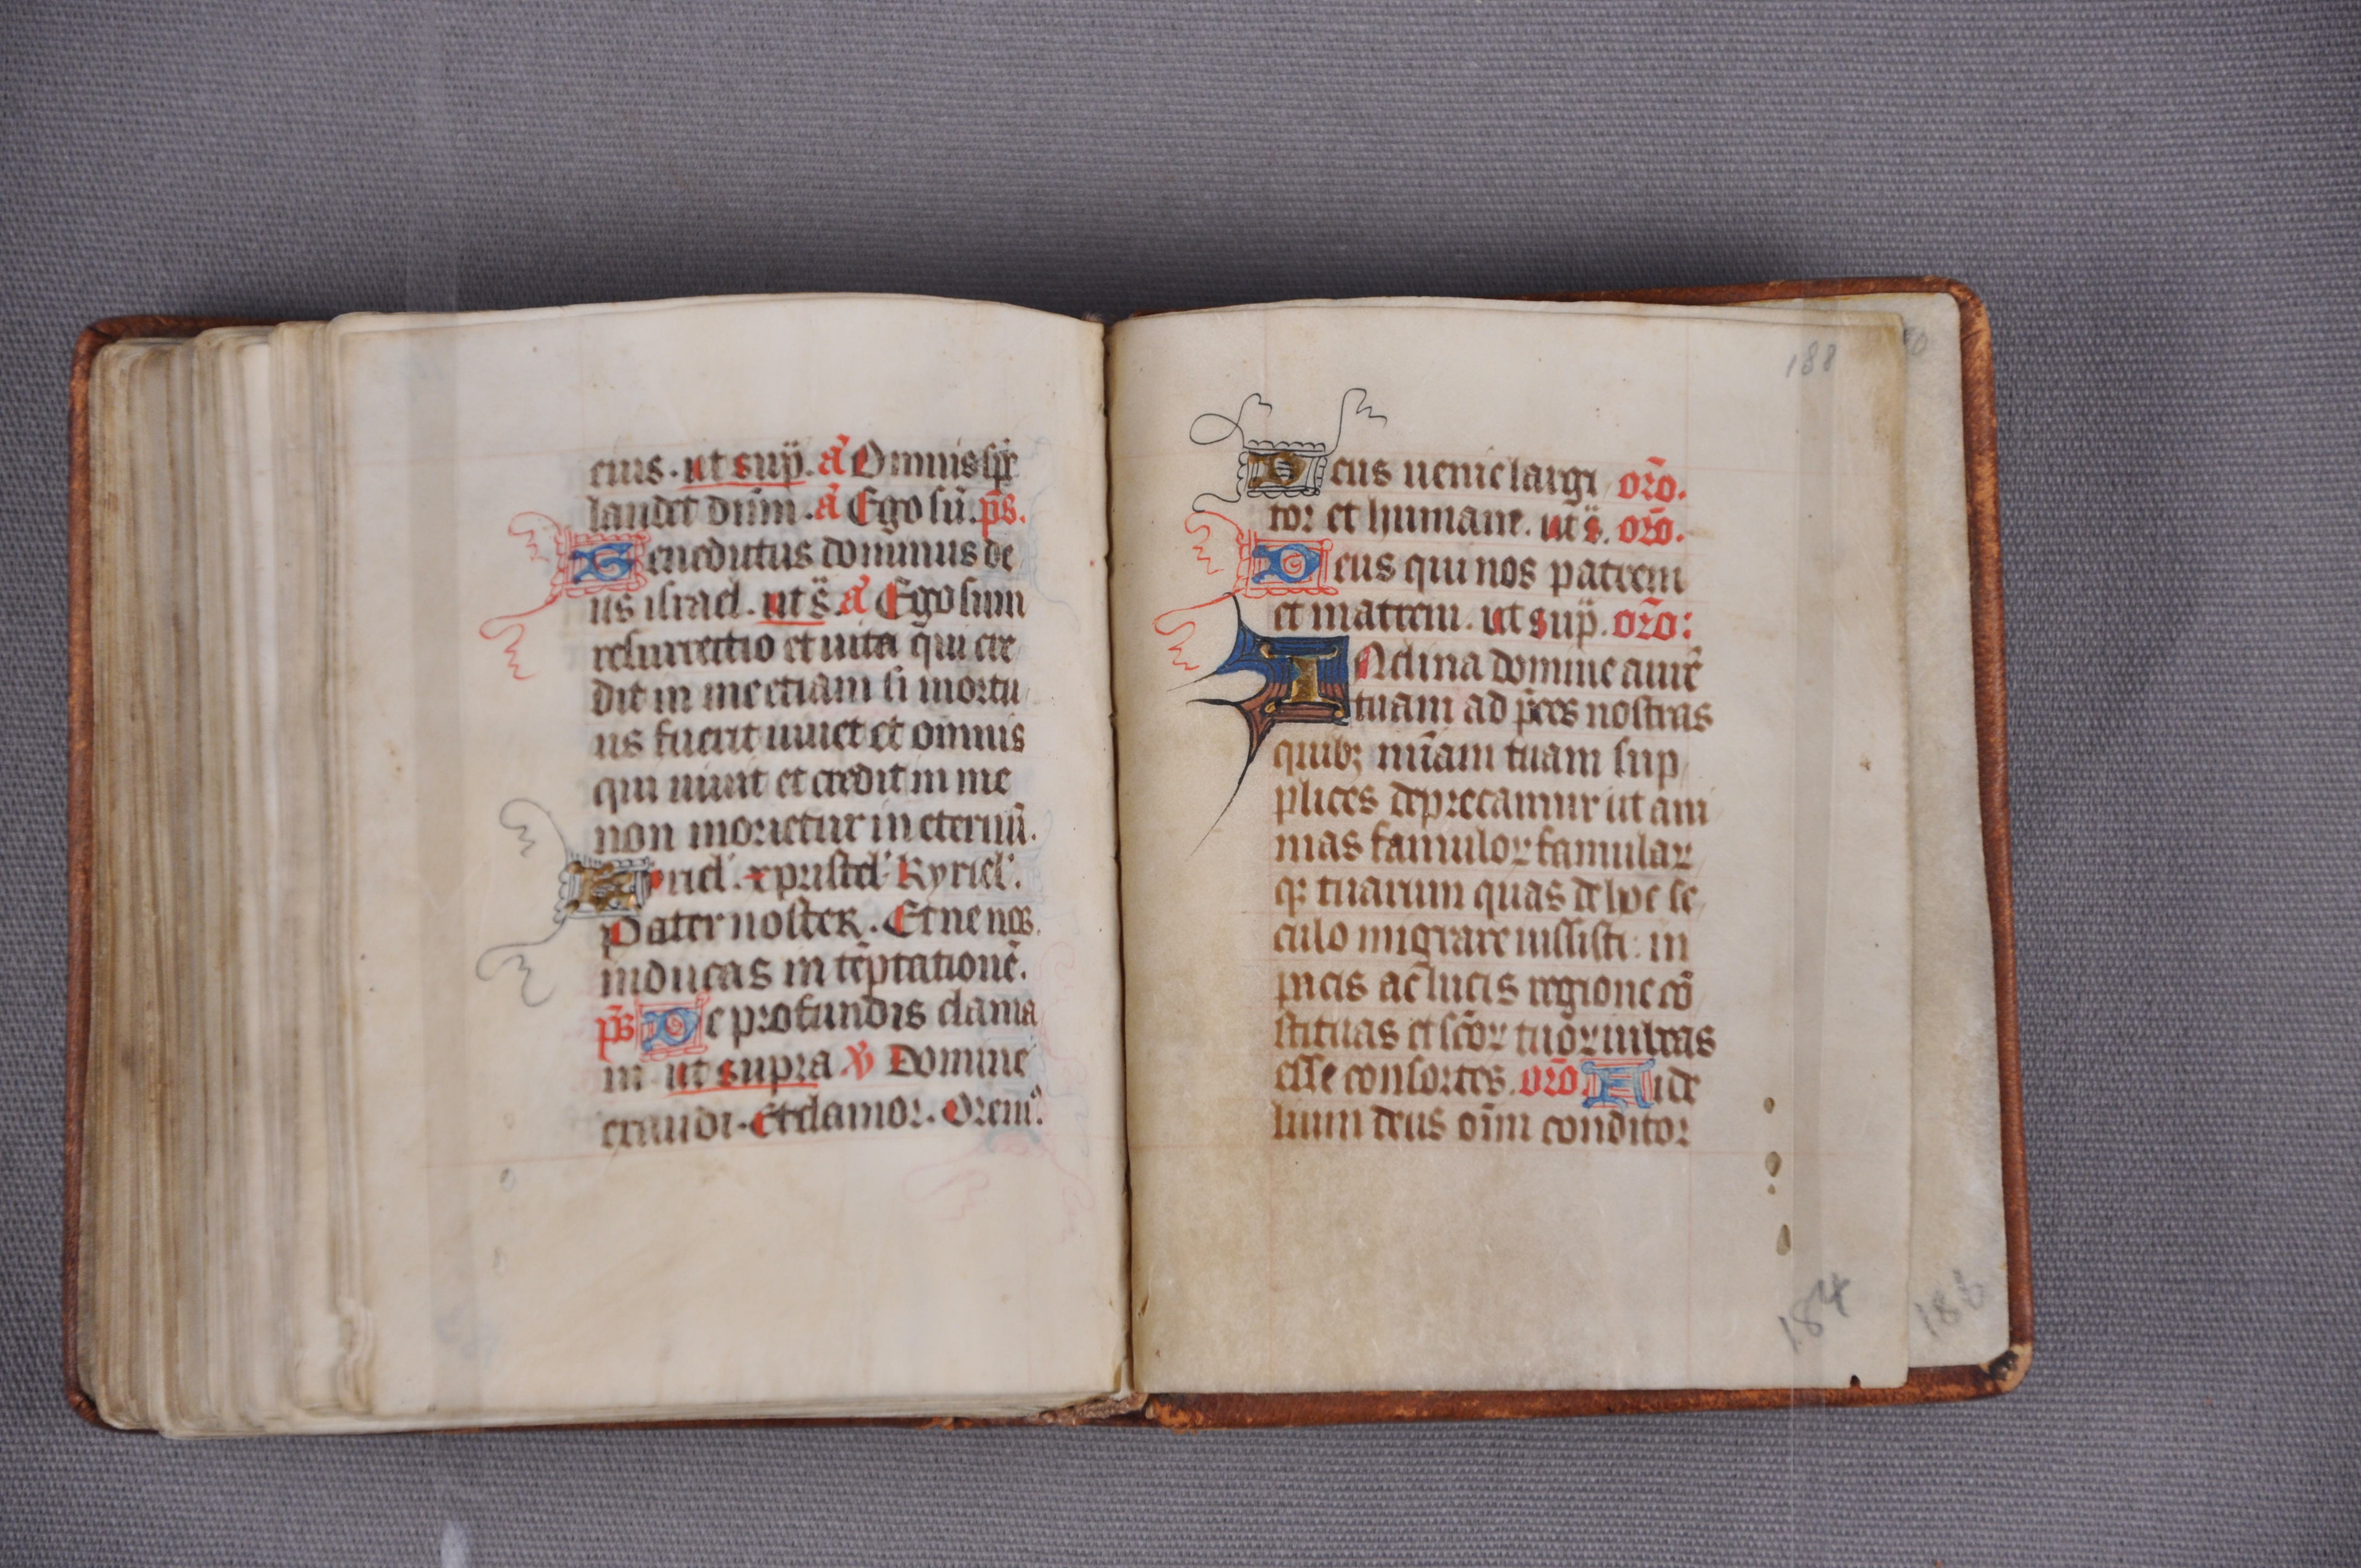 eius. ut sup̄. a᷑ Omnis sp̄c
laudet dn̄m. a᷑ Ego sū. p̄s.
Benedictus dominus de
us israel. ut s̄. a᷑ Ego sum
resurrectio et uita qui cre
dit in me etiam si mortu
us fuerit uiuet et omnis
qui uiuit et credit in me
non morietur in eternū.
Kyriel'. xpristel' Kyriel'.
Pater noster. Et ne nos.
inducas in tēptationē.
p̄s De profundis clama
ui ut supra ℣ Domine
exaudi. Et clamor. Orem᷒.
188
Deus uenie largi orō.
tor et humane. ut s̄. orō.
Deus qui nos patrem
et matrem. ut sup̄. orō:
INclina domine aurē
tuam ad p̄ces nostras
quibꝫ mīam tuam sup
plices deprecamur ut ani
mas famuloꝝ famulaꝝ
qꝫ tuarum quas de hoc se
culo migrare iussisti: in
pacis ac lucis regione cō
stituas et sc̄oꝝ tuoꝝ iubeas
esse consortes. orō. Fide
lium deus oīm conditor
184
186